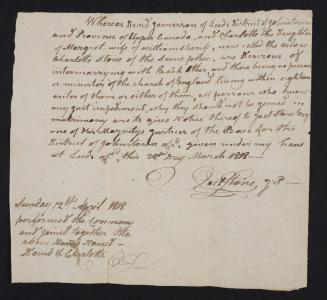 Whereas David Jamerson of Leeds District of Johnstown
and Province of Upper Canada, and Charlotte the Daughter
of Margret wife of william sherif, now called the widow
Charlotte Stone of the same place, are Desirous of
intermarrying with Each Other, and there being no parson
or minister of the church of England living within eighteen
miles of them or either of them, all persons who know
any just impediment, why they should not be Joined in
matrimony are to give Notice thereof to Joel Stone Esqr
one of His Majestys justices of the Peace for the
District of Johnstown afsd. given under my Hand
at Leeds afsd this 28th Day March 1818 —
Joel Stone, J P —
Sunday 12th April 1818
performed the Ceremony
and joined together the
above Named
David & Charlotte